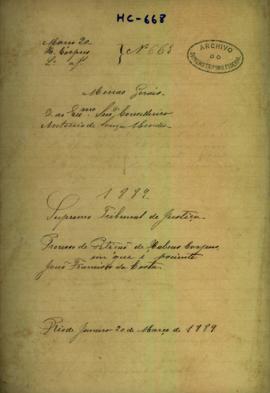 HC-668
Março 20
H. Corpus
Nº 668
ARCHIVO
DO
SUPREMO TRIBUNAL FEDERAL
Minas Geraes
Exmo. Snr. Conselheiro
Antonio de Souza Mendes
1889
Supremo Tribunal de Justiça
Processo de Petição de Habeas Corpus
em que é paciente
João Francisco da Costa
Rio de Janeiro 20 de Março de 1889